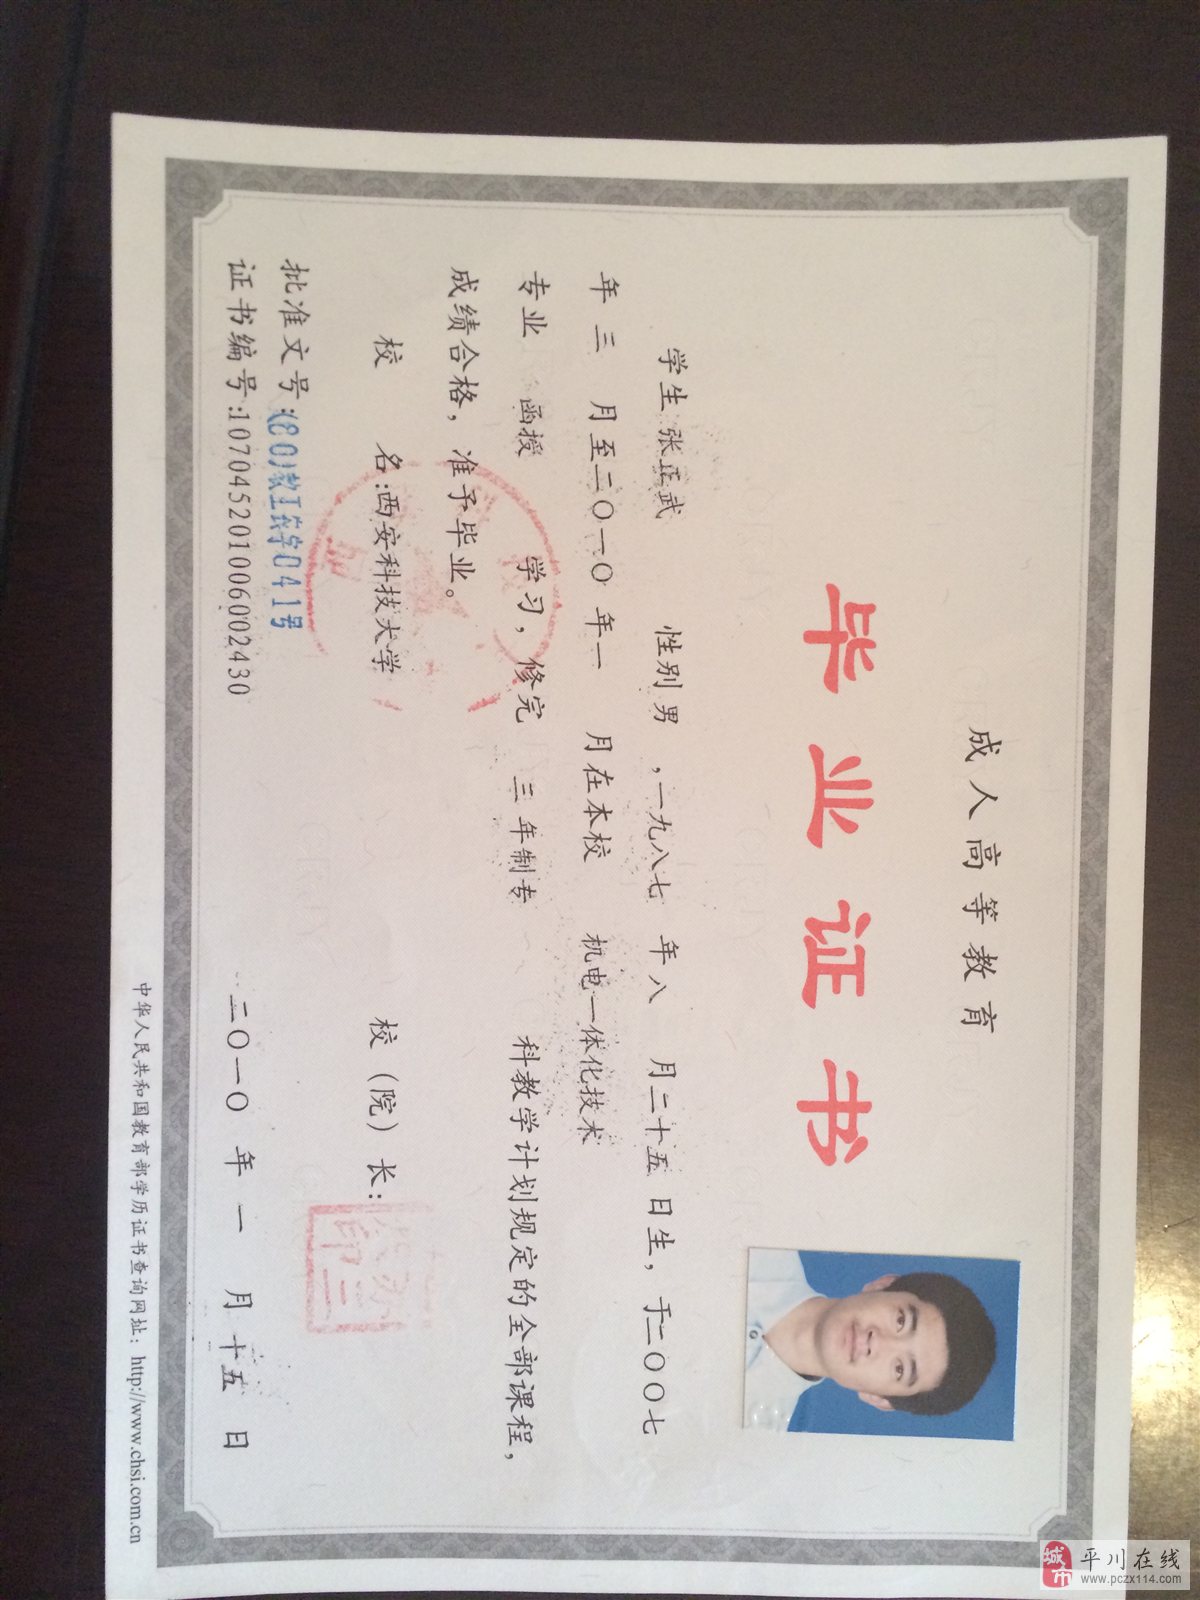 成人高等教育
毕业证书
学生 张正武 性别 男 ,一九八七 年 八 月二十五 日生，于二〇〇七
年 三 月至二〇一〇 年一 月在本校 机电一体化技术
专业 函授 学习，修完 三 年制 专 科教学计划规定的全部课程，
成绩合格，准予毕业。
校 名:西安科技大学 校（院）长:
批准文号:(80)教工农字041号
证书编号:107045201006002430 二〇一〇 年 一 月 十五 日
中华人民共和国教育部学历证书查询网址：http://www.chsi.com.cn
城市
平川在线
www.pczx114.com